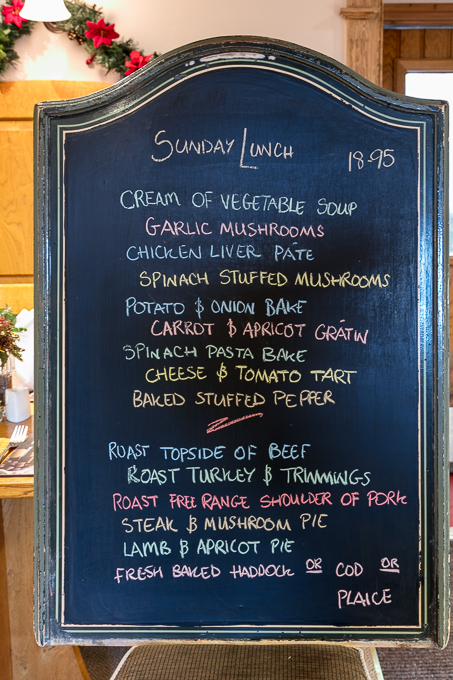 SUNDAY LUNCH 18.95
CREAM OF VEGETABLE SOUP
GARLIC MUSHROOMS
CHICKEN LIVER PÁTE
SPINACH STUFFED MUSHROOMS
POTATO & ONION BAKE
CARROT & APRICOT GRÁTIN
SPINACH PASTA BAKE
CHEESE & TOMATO TART
BAKED STUFFED PEPPER
ROAST TOPSIDE OF BEEF
ROAST TURKEY & TRIMMINGS
ROAST FREE RANGE SHOULDER OF PORK
STEAK & MUSHROOM PIE
LAMB & APRICOT PIE
FRESH BAKED HADDOCK OR COD OR
PLAICE